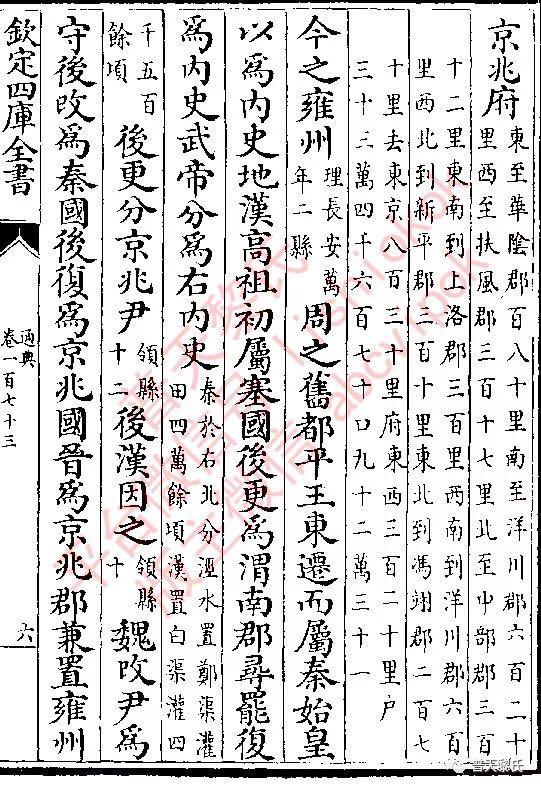 京兆府東至華陰郡百八十里南至洋川郡六百二十
里西至扶風郡三百十七里北至中部郡三百
十二里東南到上洛郡三百里西南到洋川郡六百
里西北到新平郡三百十里東北到馮翊郡二百七
十里去東京八百三十里府東西三百二十里戶
三十三萬四千六百七十口九十二萬三十一
今之雍州理長安萬年二縣周之舊都平王東遷而屬秦始皇
以爲內史地漢高祖初屬塞國後更爲渭南郡尋罷復
爲內史武帝分爲右內史秦於右北分涇水置鄭渠灌田四萬餘項漢置白渠灌四
千五百餘項後更分京兆尹領縣十二後漢因之領縣十魏改尹爲
守後改爲秦國後復爲京兆國晉爲京兆郡兼置雍州
欽定四庫全書
通典
卷一百七十三
六
普天黎氏